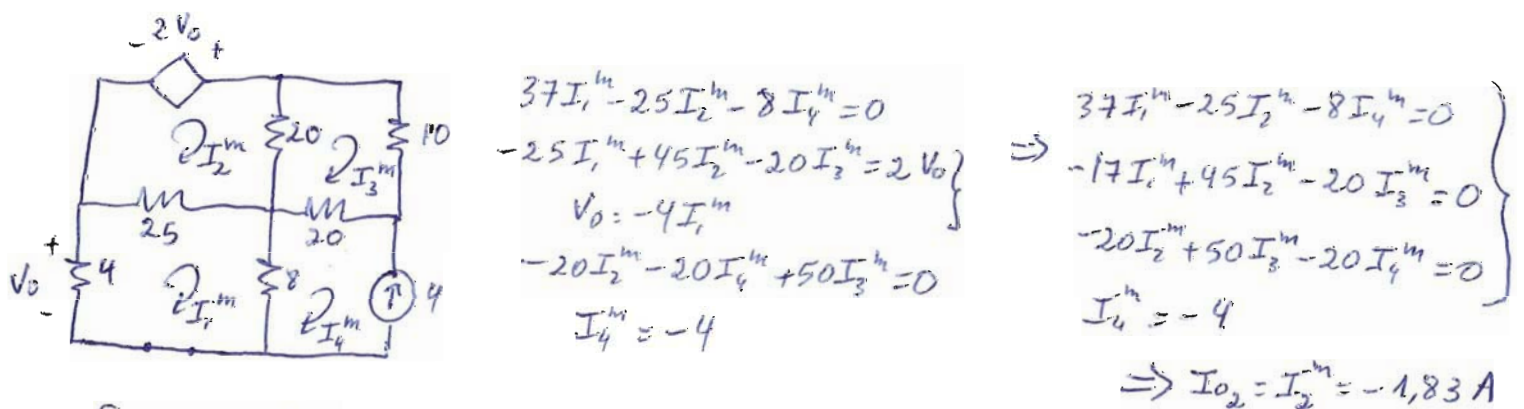 - 2 V₀ +
20
10
I₂ᵐ
I₃ᵐ
25
20
+
V₀
-
4
8
4
I₁ᵐ
I₄ᵐ
37I₁ᵐ - 25I₂ᵐ - 8I₄ᵐ = 0
-25I₁ᵐ + 45I₂ᵐ - 20I₃ᵐ = 2 V₀ }
V₀ = -4I₁ᵐ
-20I₂ᵐ - 20I₄ᵐ + 50I₃ᵐ = 0
I₄ᵐ = -4
⇒ 37I₁ᵐ - 25I₂ᵐ - 8I₄ᵐ = 0
-17I₁ᵐ + 45I₂ᵐ - 20I₃ᵐ = 0
-20I₂ᵐ + 50I₃ᵐ - 20I₄ᵐ = 0 }
I₄ᵐ = -4
⇒ I₀₂ = I₂ᵐ = -1,83 A